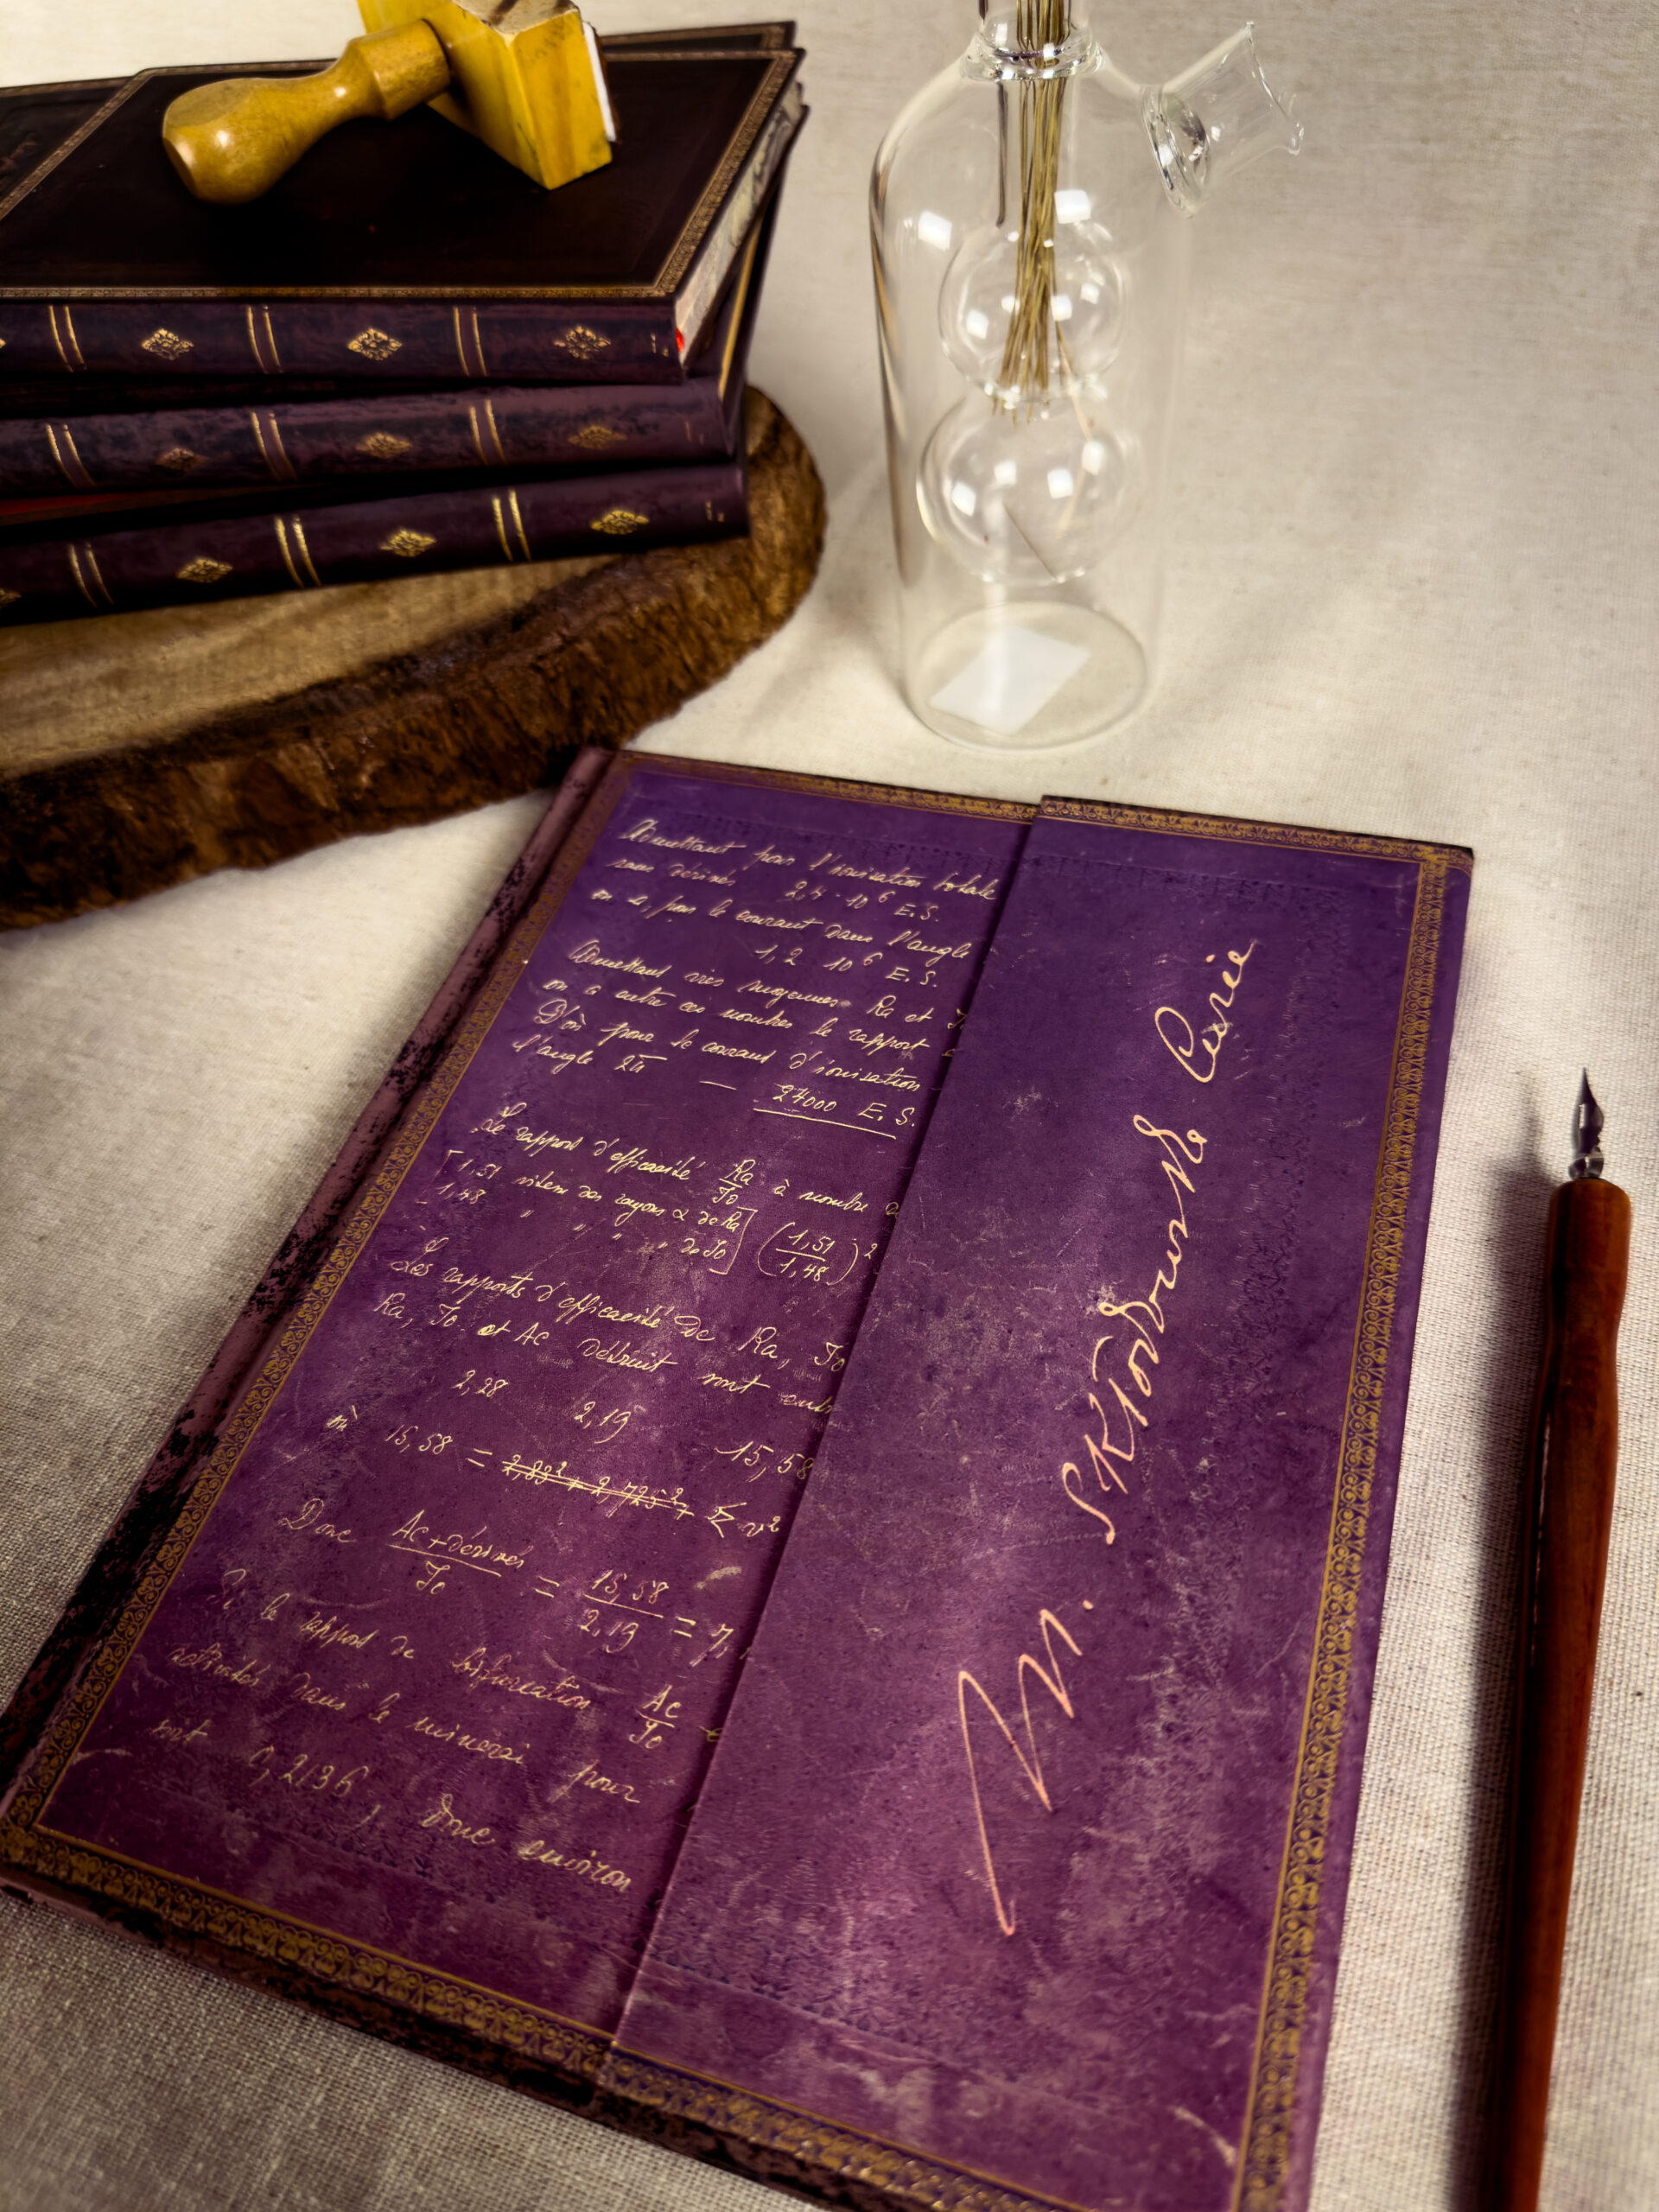 Admettant pour l'ionisation totale
sans dérivés 2,4 · 10⁶ E.S.
on a, pour le courant dans l'angle
1,2 10⁶ E.S.
Admettant vies moyennes Ra et
on a entre ces nombres le rapport
D'où pour le courant d'ionisation
l'angle 2π — 24000 E.S.
Le rapport d'efficacité Ra/Io à nombre
[1,51 vitesse des rayons α de Ra
1,48 " " " " de Io] (1,51/1,48)²
Les rapports d'efficacité de Ra, Io
Ra, Io et Ac déduit sont entre
2,28 2,19 15,58
où 15,58 = 2,89² + 2,725² + Σ v²
Donc Ac+dérivés/Io = 15,58/2,19 = 7,
le rapport de bifurcation Ac/Io
activités dans le minerai pour
sont 0,2136, donc environ
M. Skłodowska Curie